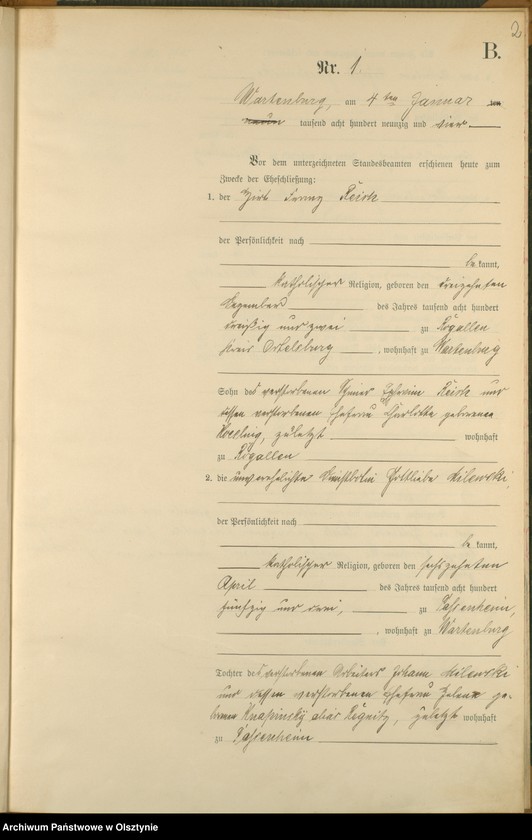 2
B.
Nr. 1.
Wartenburg, am 4ten Januar
tausend acht hundert neunzig und vier
Vor dem unterzeichneten Standesbeamten erschienen heute zum
Zwecke der Eheschließung:
1. der Hirt Franz Reick
der Persönlichkeit nach
be kannt,
katholischer Religion, geboren den dreizehnten
Dezember des Jahres tausend acht hundert
dreißig und zwei zu Rogallen
Kreis Ortelsburg, wohnhaft zu Wartenburg
Sohn des verstorbenen Reick und
dessen verstorbenen Ehefrau Charlotte geborenen
zuletzt wohnhaft
zu Rogallen
2. die unverehelichte Gottliebe Milewski,
der Persönlichkeit nach
be kannt,
katholischer Religion, geboren den sechszehnten
April des Jahres tausend acht hundert
fünfzig und drei, zu Passenheim,
, wohnhaft zu Wartenburg
Tochter des verstorbenen Arbeiters Johann Milewski
und dessen verstorbenen Ehefrau ge-
borenen Knapinsky alias zuletzt wohnhaft
zu Passenheim
Archiwum Państwowe w Olsztynie